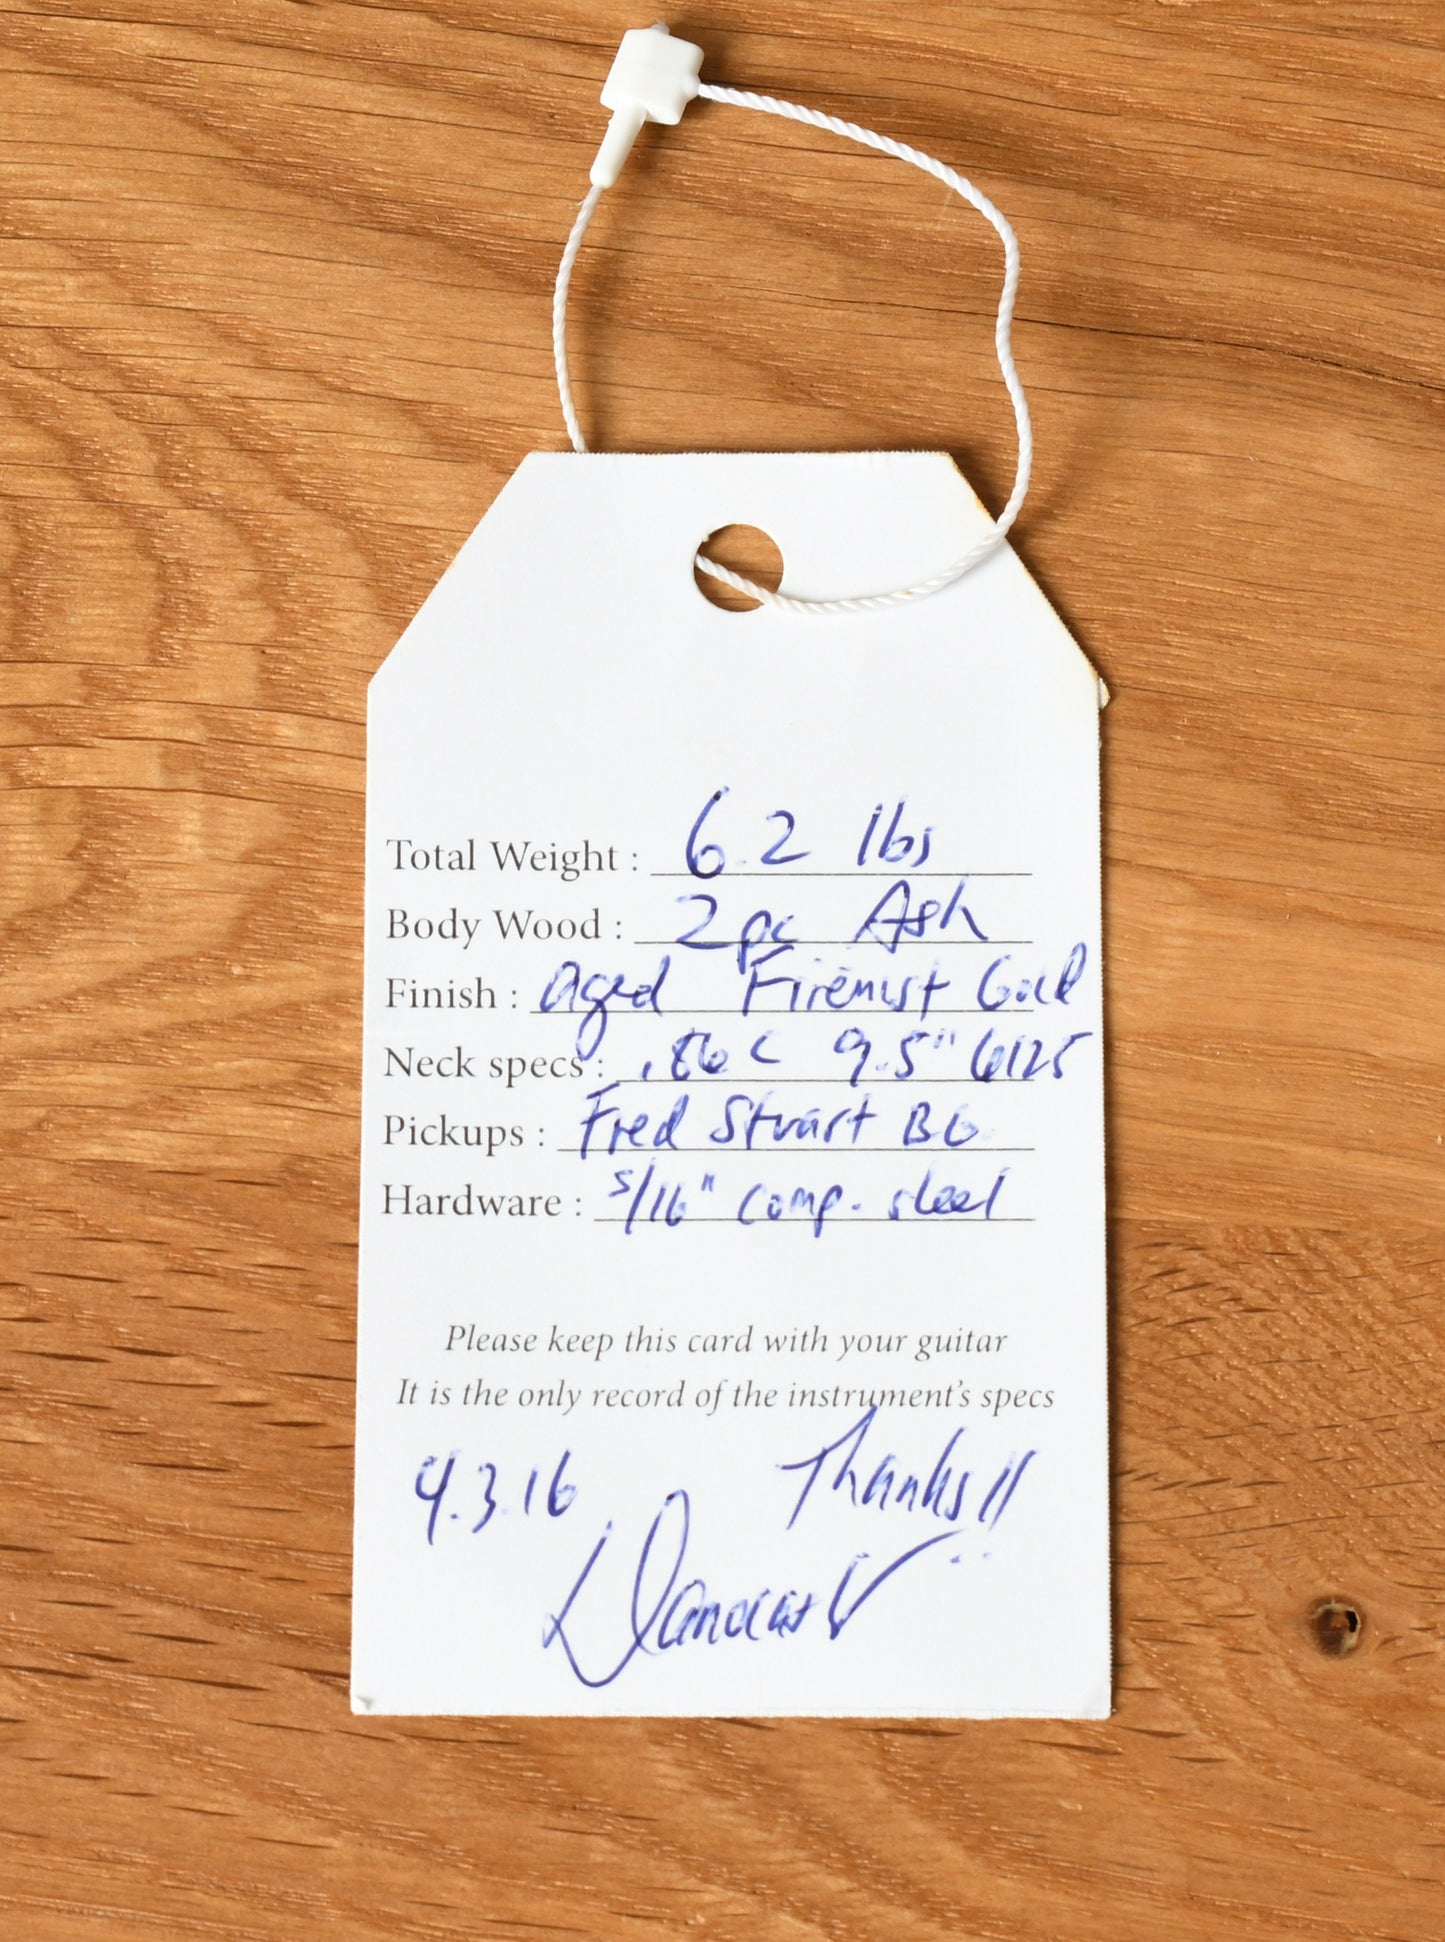 Total Weight : 6.2 lbs
Body Wood : 2pc Ash
Finish : Aged Firemist Gold
Neck specs : .86 C 9.5" 6125
Pickups : Fred Stuart BG
Hardware : 5/16" comp. steel
Please keep this card with your guitar
It is the only record of the instrument's specs
4.3.16 Thanks!!